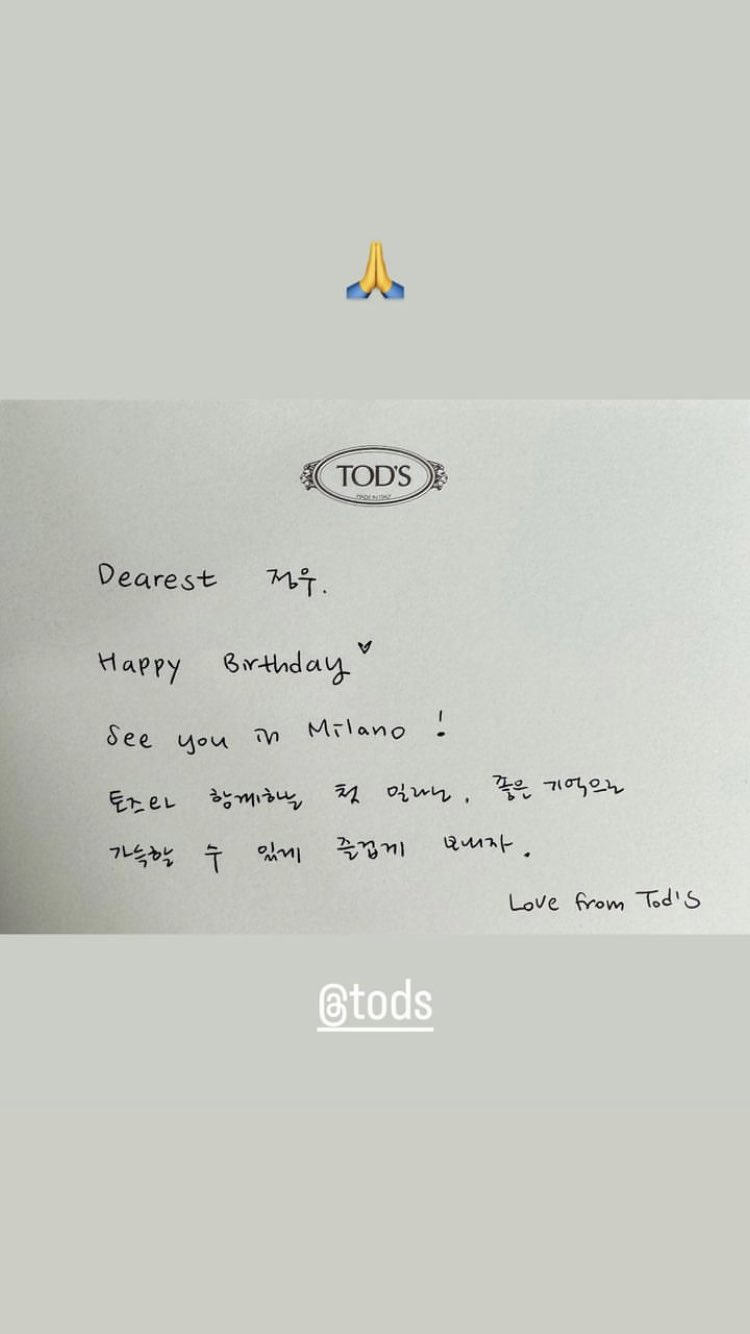 TOD'S
MADE IN ITALY
Dearest 정우.
Happy Birthday
See you in Milano !
토즈와 함께하는 첫 밀라노, 좋은 기억으로
가득할 수 있게 즐겁게 보내자.
Love from Tod's
@tods